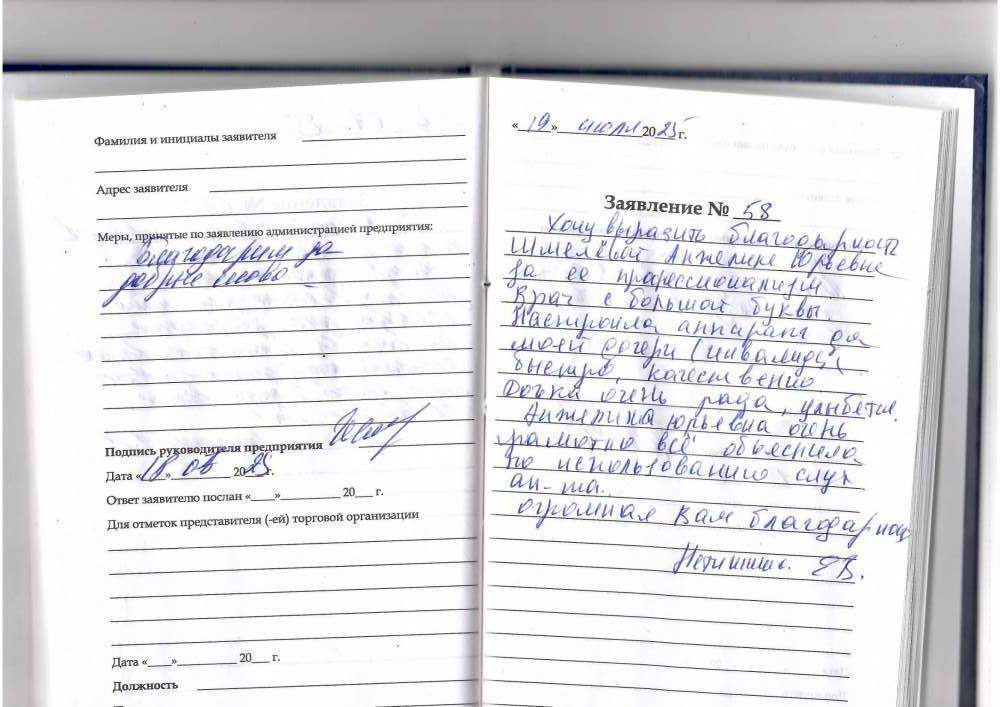 Фамилия и инициалы заявителя
Адрес заявителя
Меры, принятые по заявлению администрацией предприятия:
Благодарим за
добрые слова
Подпись руководителя предприятия
Дата «18» 08 2025 г.
Ответ заявителю послан «___»__________ 20___ г.
Для отметок представителя (-ей) торговой организации
Дата «___»__________ 20___ г.
Должность
«19» июля 2025 г.
Заявление № 58
Хочу выразить благодарность
Шмелёвой Анжелике Юрьевне
за ее профессионализм.
Врач с большой буквы.
Настроила аппарат
моей дочери (инвалид),
быстро, качественно
Дочка очень рада, улыбется.
Анжелика Юрьевна очень
грамотно всё объяснила
по использованию слух
ап-та.
огромная Вам благодарность